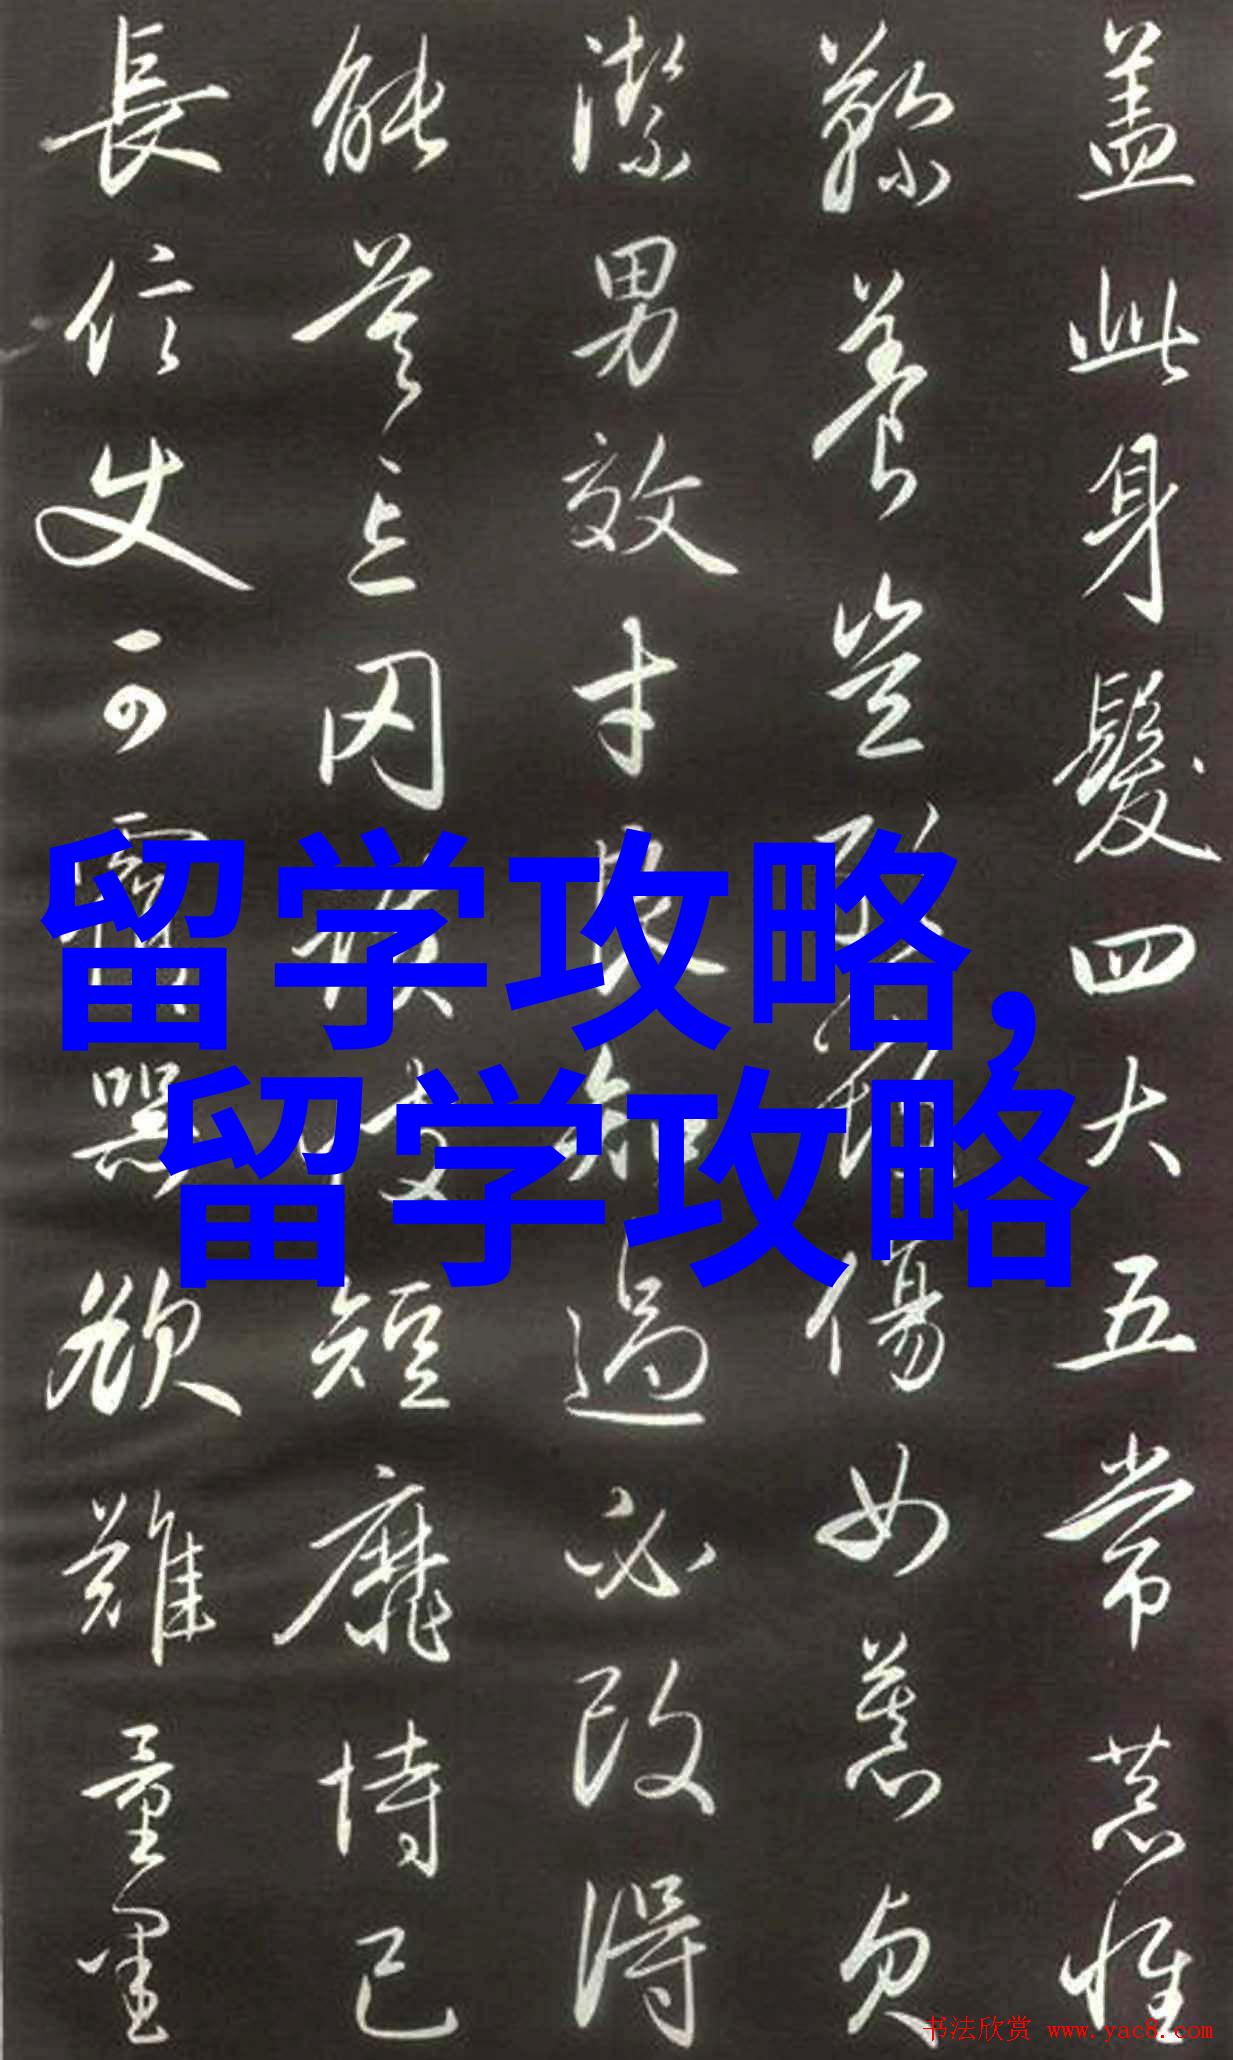 盖此身髮四大五常恭惟
鞠養豈敢毀傷女慕貞
潔男效才良知過必改得
能莫忘罔談彼短靡恃己
長信使可覆器欲難量墨
留学攻略,
留学攻略
书法欣赏 www.yac8.com